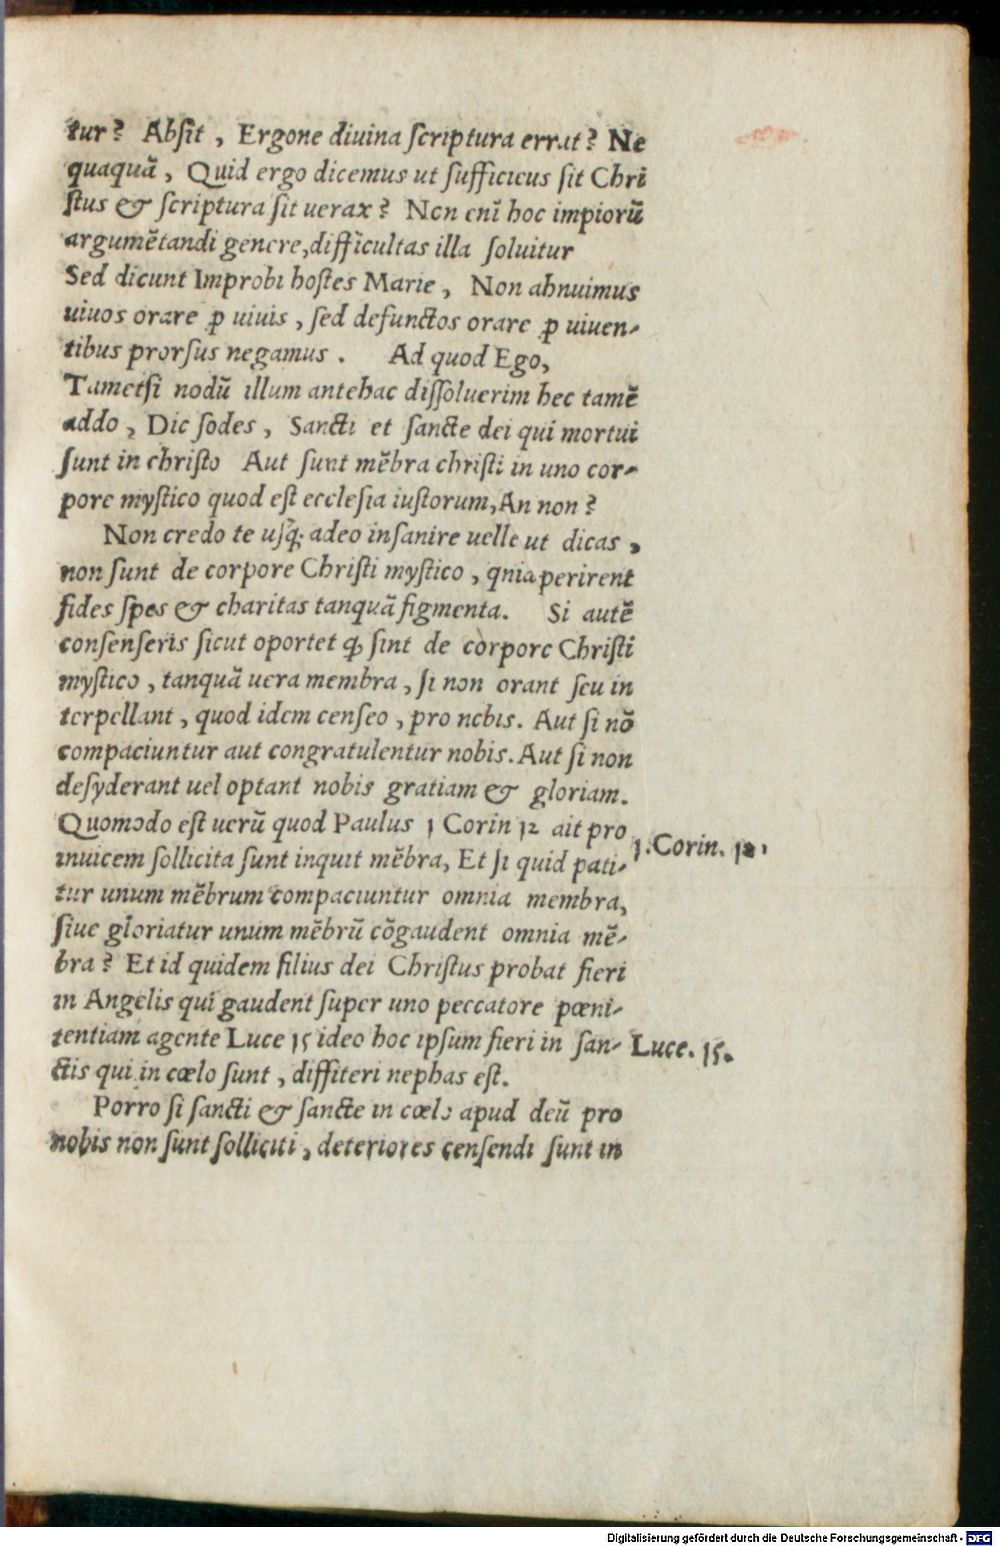 tur? Absit, Ergone diuina scriptura errat? Ne
quaquā, Quid ergo dicemus ut sufficicus sit Chri
stus & scriptura sit uerax? Non enī hoc impiorū
argumētandi genere, difficultas illa soluitur
Sed dicunt Improbi hostes Marie, Non abnuimus
uiuos orare ꝓ uiuis, sed defunctos orare ꝓ uiuen-
tibus prorsus negamus. Ad quod Ego,
Tametsi nodū illum antehac dissoluerim hec tamē
addo, Dic sodes, Sancti et sancte dei qui mortui
sunt in christo Aut sunt mēbra christi in uno cor-
pore mystico quod est ecclesia iustorum, An non?
Non credo te usq̢ adeo insanire uelle ut dicas,
non sunt de corpore Christi mystico, qnia perirent
fides spes & charitas tanquā figmenta. Si autē
consenseris sicut oportet ꝙ sint de corpore Christi
mystico, tanquā uera membra, si non orant seu in
terpellant, quod idem censeo, pro nobis. Aut si nō
compaciuntur aut congratulentur nobis. Aut si non
desyderant uel optant nobis gratiam & gloriam.
Quomodo est uerū quod Paulus 1 Corin 12 ait pro
inuicem sollicita sunt inquit mēbra, Et si quid pati-
tur unum mēbrum compaciuntur omnia membra,
siue gloriatur unum mēbrū cōgaudent omnia mē-
bra? Et id quidem filius dei Christus probat fieri
in Angelis qui gaudent super uno peccatore pœni-
tentiam agente Luce 15 ideo hoc ipsum fieri in san-
ctis qui in cœlo sunt, diffiteri nephas est.
Porro si sancti & sancte in cœlo apud deū pro
nobis non sunt solliciti, deteriores censendi sunt in
1. Corin. 12.
Luce. 15.
Digitalisierung gefördert durch die Deutsche Forschungsgemeinschaft - DFG